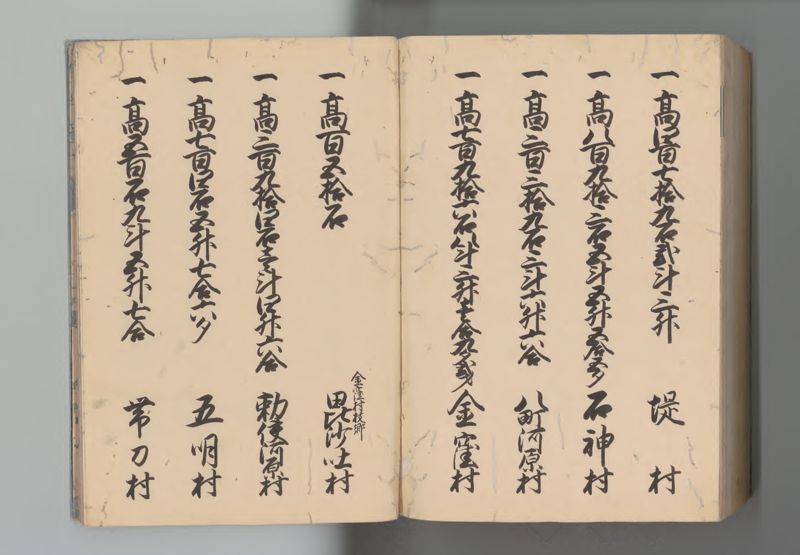 一高四百七拾九石弐斗三升 堤村
一高八百九拾二石五斗五升五合五夕 石神村
一高三百三拾九石三斗六升六合 八町河原村
一高七百九拾六石八斗三升七合九夕弐才 金窪村
金窪村枝郷
一高百五拾石 毘沙吐村
一高三百九拾四石壱斗四升六合 勅使河原村
一高七百四石五升七合六夕 五明村
一高五百石九斗五升七合 帯刀村